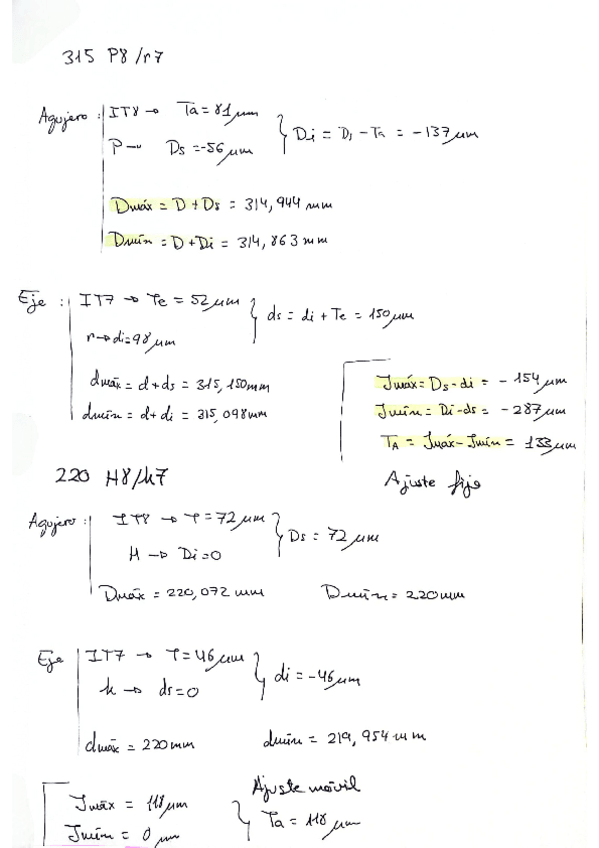 315 P8/r7
Agujero: IT8 → Ta = 81 μm
P → Ds = -56 μm
Di = Ds - Ta = -137 μm
Dmáx = D + Ds = 314,944 mm
Dmín = D + Di = 314,863 mm
Eje: IT7 → Te = 52 μm
r → di = 98 μm
ds = di + Te = 150 μm
dmáx = d + ds = 315,150 mm
dmín = d + di = 315,098 mm
Jmáx = Ds - di = - 154 μm
Jmín = Di - ds = - 287 μm
TA = Jmáx - Jmín = 133 μm
Ajuste fijo
220 H8/h7
Agujero: IT8 → T = 72 μm
H → Di = 0
Ds = 72 μm
Dmáx = 220,072 mm Dmín = 220 mm
Eje IT7 → T = 46 μm
h → ds = 0
di = -46 μm
dmáx = 220 mm dmín = 219,954 mm
Ajuste móvil
Jmáx = 118 μm
Jmín = 0 μm
Ta = 118 μm